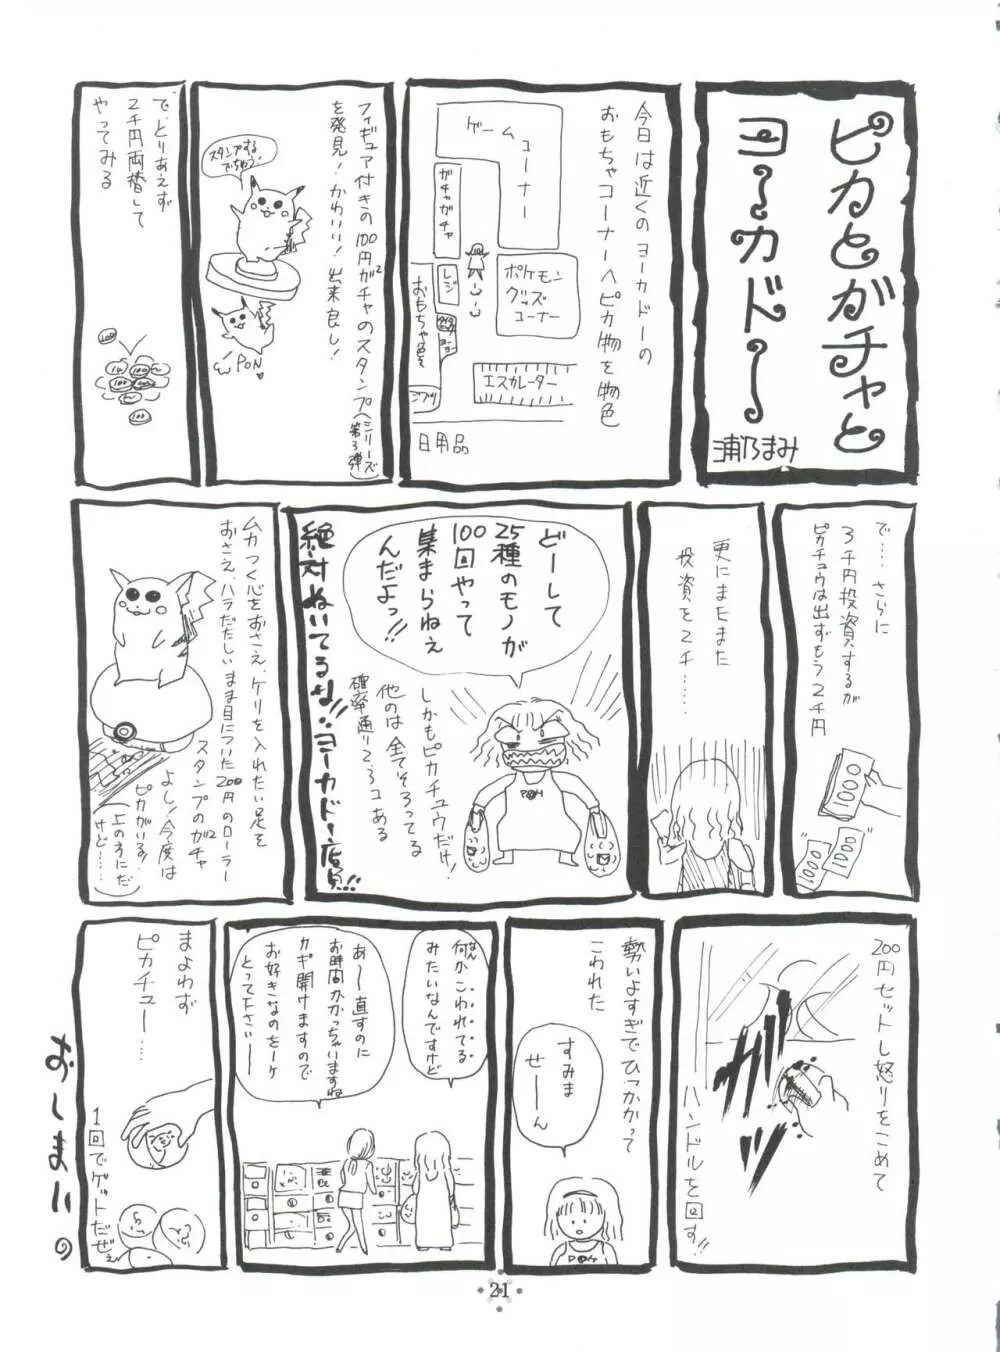 ピカとガチャと
ヨーカドー
浦乃まみ
今日は近くのヨーカドーの
おもちゃコーナーへピカ物を物色
ゲームコーナー
ガチャガチャ
レジ
ポケモン
グッズ
コーナー
おもちゃ色々
エスカレーター
日用品
フィギュア付きの100円ガチャのスタンプ(シリーズ第3弾)
を発見!かわいい!出来良し!
スタンプする
でちゅう!
PON
で、とりあえず
2千円両替して
やってみる
100
100
100
で……さらに
3千円投資するが
ピカチュウは出ずもう2千円
1000
1000
1000
更にまたまた
投資を2千……
どーして
25種のモノが
100回やって
集まらねえ
んだよっ!!
しかもピカチュウだけ!
他のは全てそろってる
確率通り2、3コある
絶対ぬいてるな!!ヨーカドー店員!!!
ムカつく心をおさえ、ケリを入れたい足を
おさえ、ハラだたしいまま目についた200円のローラー
スタンプのガチャ
よし!今度は
ピカがいる!
(上の方にだ
けど……)
200円セットし怒りをこめて
ハンドルを回す!!
ガッ
勢いよすぎてひっかかって
こわれた
すみま
せーん
何かこわれてる
みたいなんですけど
なん
あー直すのに
お時間かかっちゃいますね
カギ開けますので
お好きなのをーケ
とって下さいー
まよわず
ピカチュー……
1回でゲットだぜぇ
おしまい。
21